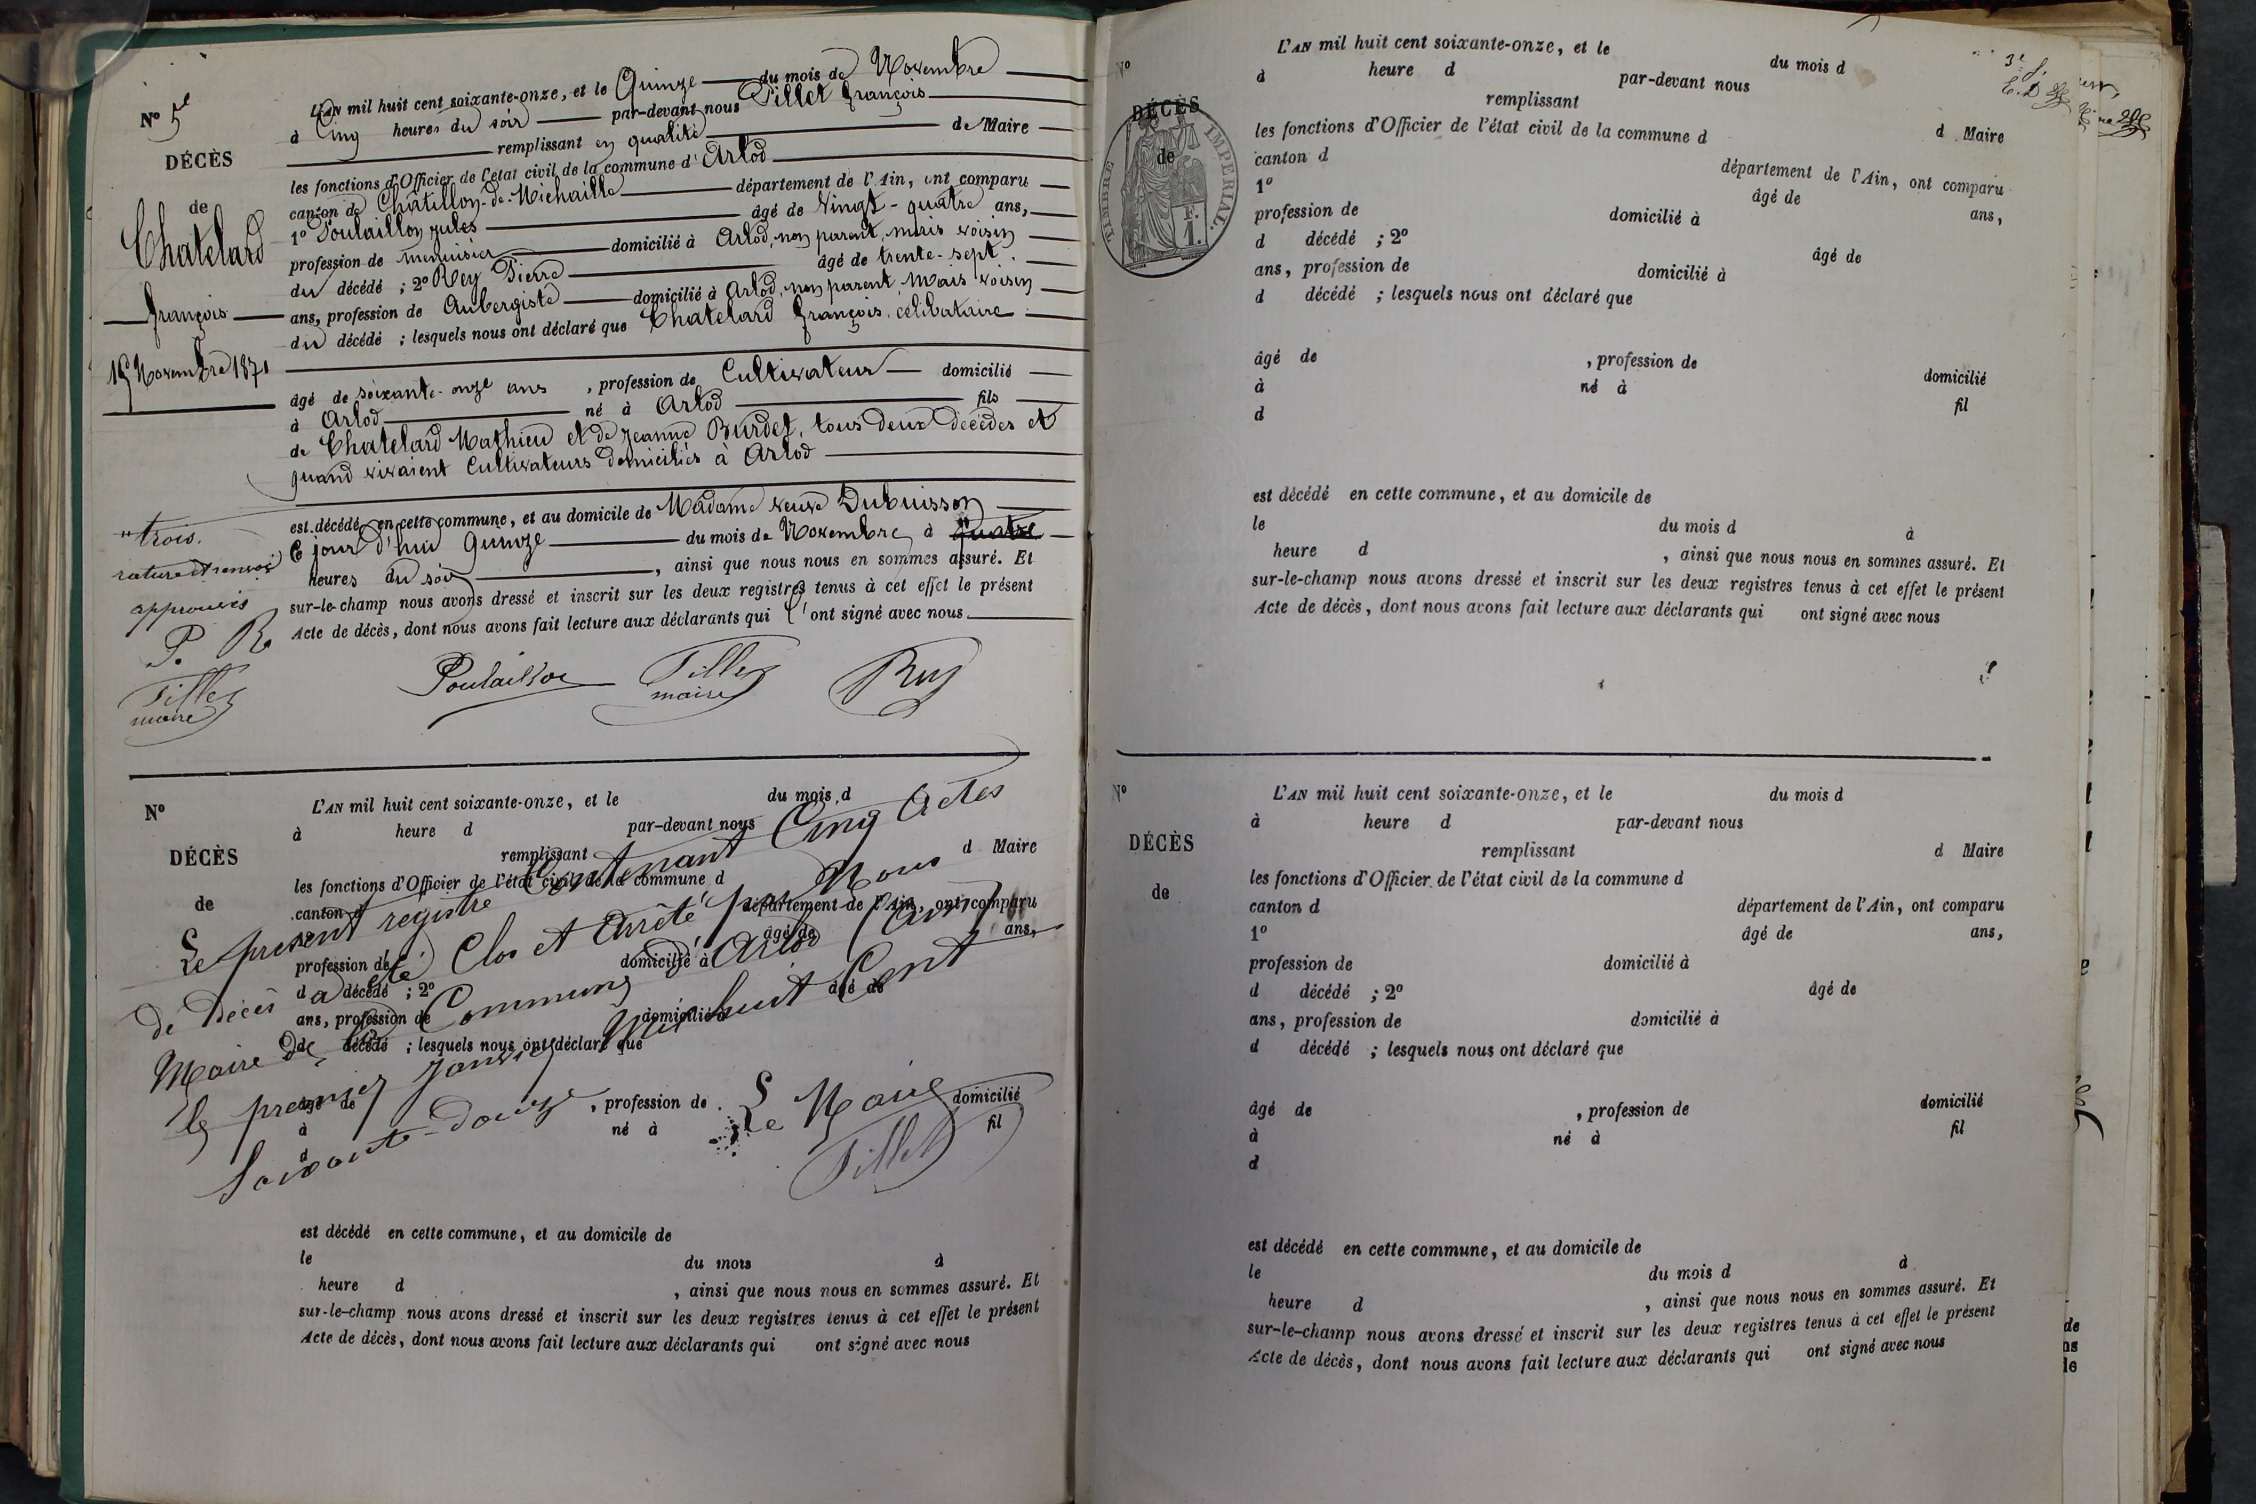 Nº 5e
DÉCÈS
de
Chatelard
François
15 Novembre 1871
L'AN mil huit cent soixante-onze, et le Quinze du mois de Novembre
à Cinq heures du soir par-devant nous Tillet François
remplissant en qualité de Maire
les fonctions d'Officier de l'état civil de la commune d'Arlod
canton de Châtillon-de-Michaille département de l'Ain, ont comparu
1º Poulaillon Jules âgé de vingt-quatre ans,
profession de menuisier domicilié à Arlod, non parent, mais voisin
du décédé ; 2º Rey Pierre âgé de trente-sept
ans, profession de Aubergiste domicilié à Arlod, non parent mais voisin
du décédé ; lesquels nous ont déclaré que Chatelard François, célibataire
âgé de soixante-onze ans, profession de Cultivateur domicilié
à Arlod né à Arlod fils
de Chatelard Mathieu et de Jeanne Burdet, tous deux décédés et
quand vivaient Cultivateurs domiciliés à Arlod
est décédé en cette commune, et au domicile de Madame veuve Dubuisson
Ce jour d'hui quinze du mois de Novembre à quatre
heures du soir, ainsi que nous nous en sommes assuré. Et
sur-le-champ nous avons dressé et inscrit sur les deux registres tenus à cet effet le présent
Acte de décès, dont nous avons fait lecture aux déclarants qui l'ont signé avec nous
" trois.
rature et renvoi
approuvés
P. R
Tillet
maire
Poulaillon
Tillet
maire
Rey
Nº
DÉCÈS
de
L'AN mil huit cent soixante-onze, et le du mois d
à heure d par-devant nous
remplissant d Maire
les fonctions d'Officier de l'état civil de la commune d
canton d département de l'Ain, ont comparu
âgé de ans,
profession de domicilié à
d décédé ; 2º âgé de
ans, profession de domicilié à
d décédé ; lesquels nous ont déclaré que
âgé de , profession de domicilié
à né à fil
d
Le présent registre Contenant Cinq Actes
de Décès a été Clos et Arrêté par Nous
Maire de la Commune d'Arlod (Ain)
le premier Janvier Mil huit Cent
Soixante-Douze
Le Maire
Tillet
est décédé en cette commune, et au domicile de
le du mois à
heure d , ainsi que nous nous en sommes assuré. Et
sur-le-champ nous avons dressé et inscrit sur les deux registres tenus à cet effet le présent
Acte de décès, dont nous avons fait lecture aux déclarants qui ont signé avec nous
Nº
DÉCÈS
de
TIMBRE IMPERIAL.
1 F.
L'AN mil huit cent soixante-onze, et le du mois d
à heure d par-devant nous
remplissant d Maire
les fonctions d'Officier de l'état civil de la commune d
canton d département de l'Ain, ont comparu
1º âgé de ans,
profession de domicilié à
d décédé ; 2º âgé de
ans, profession de domicilié à
d décédé ; lesquels nous ont déclaré que
âgé de , profession de domicilié
à né à fil
d
est décédé en cette commune, et au domicile de
le du mois d à
heure d , ainsi que nous nous en sommes assuré. Et
sur-le-champ nous avons dressé et inscrit sur les deux registres tenus à cet effet le présent
Acte de décès, dont nous avons fait lecture aux déclarants qui ont signé avec nous
Nº
DÉCÈS
de
L'AN mil huit cent soixante-onze, et le du mois d
à heure d par-devant nous
remplissant d Maire
les fonctions d'Officier de l'état civil de la commune d
canton d département de l'Ain, ont comparu
1º âgé de ans,
profession de domicilié à
d décédé ; 2º âgé de
ans, profession de domicilié à
d décédé ; lesquels nous ont déclaré que
âgé de , profession de domicilié
à né à fil
d
est décédé en cette commune, et au domicile de
le du mois d à
heure d , ainsi que nous nous en sommes assuré. Et
sur-le-champ nous avons dressé et inscrit sur les deux registres tenus à cet effet le présent
Acte de décès, dont nous avons fait lecture aux déclarants qui ont signé avec nous